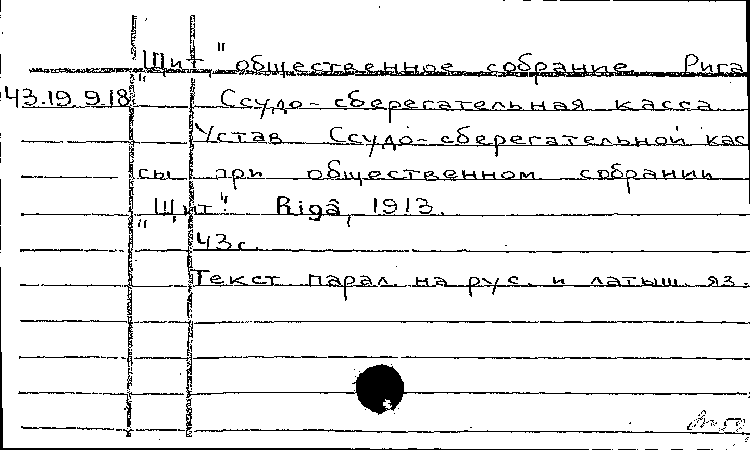 "Щит" общественное собрание. Рига
43.19.918 Ссудо-сберегательная касса
Устав Ссудо-сберегательной кас
сы при общественном собрании
"Щит". Rīgâ, 1913.
43с.
Текст парал. на рус. и латыш. яз.